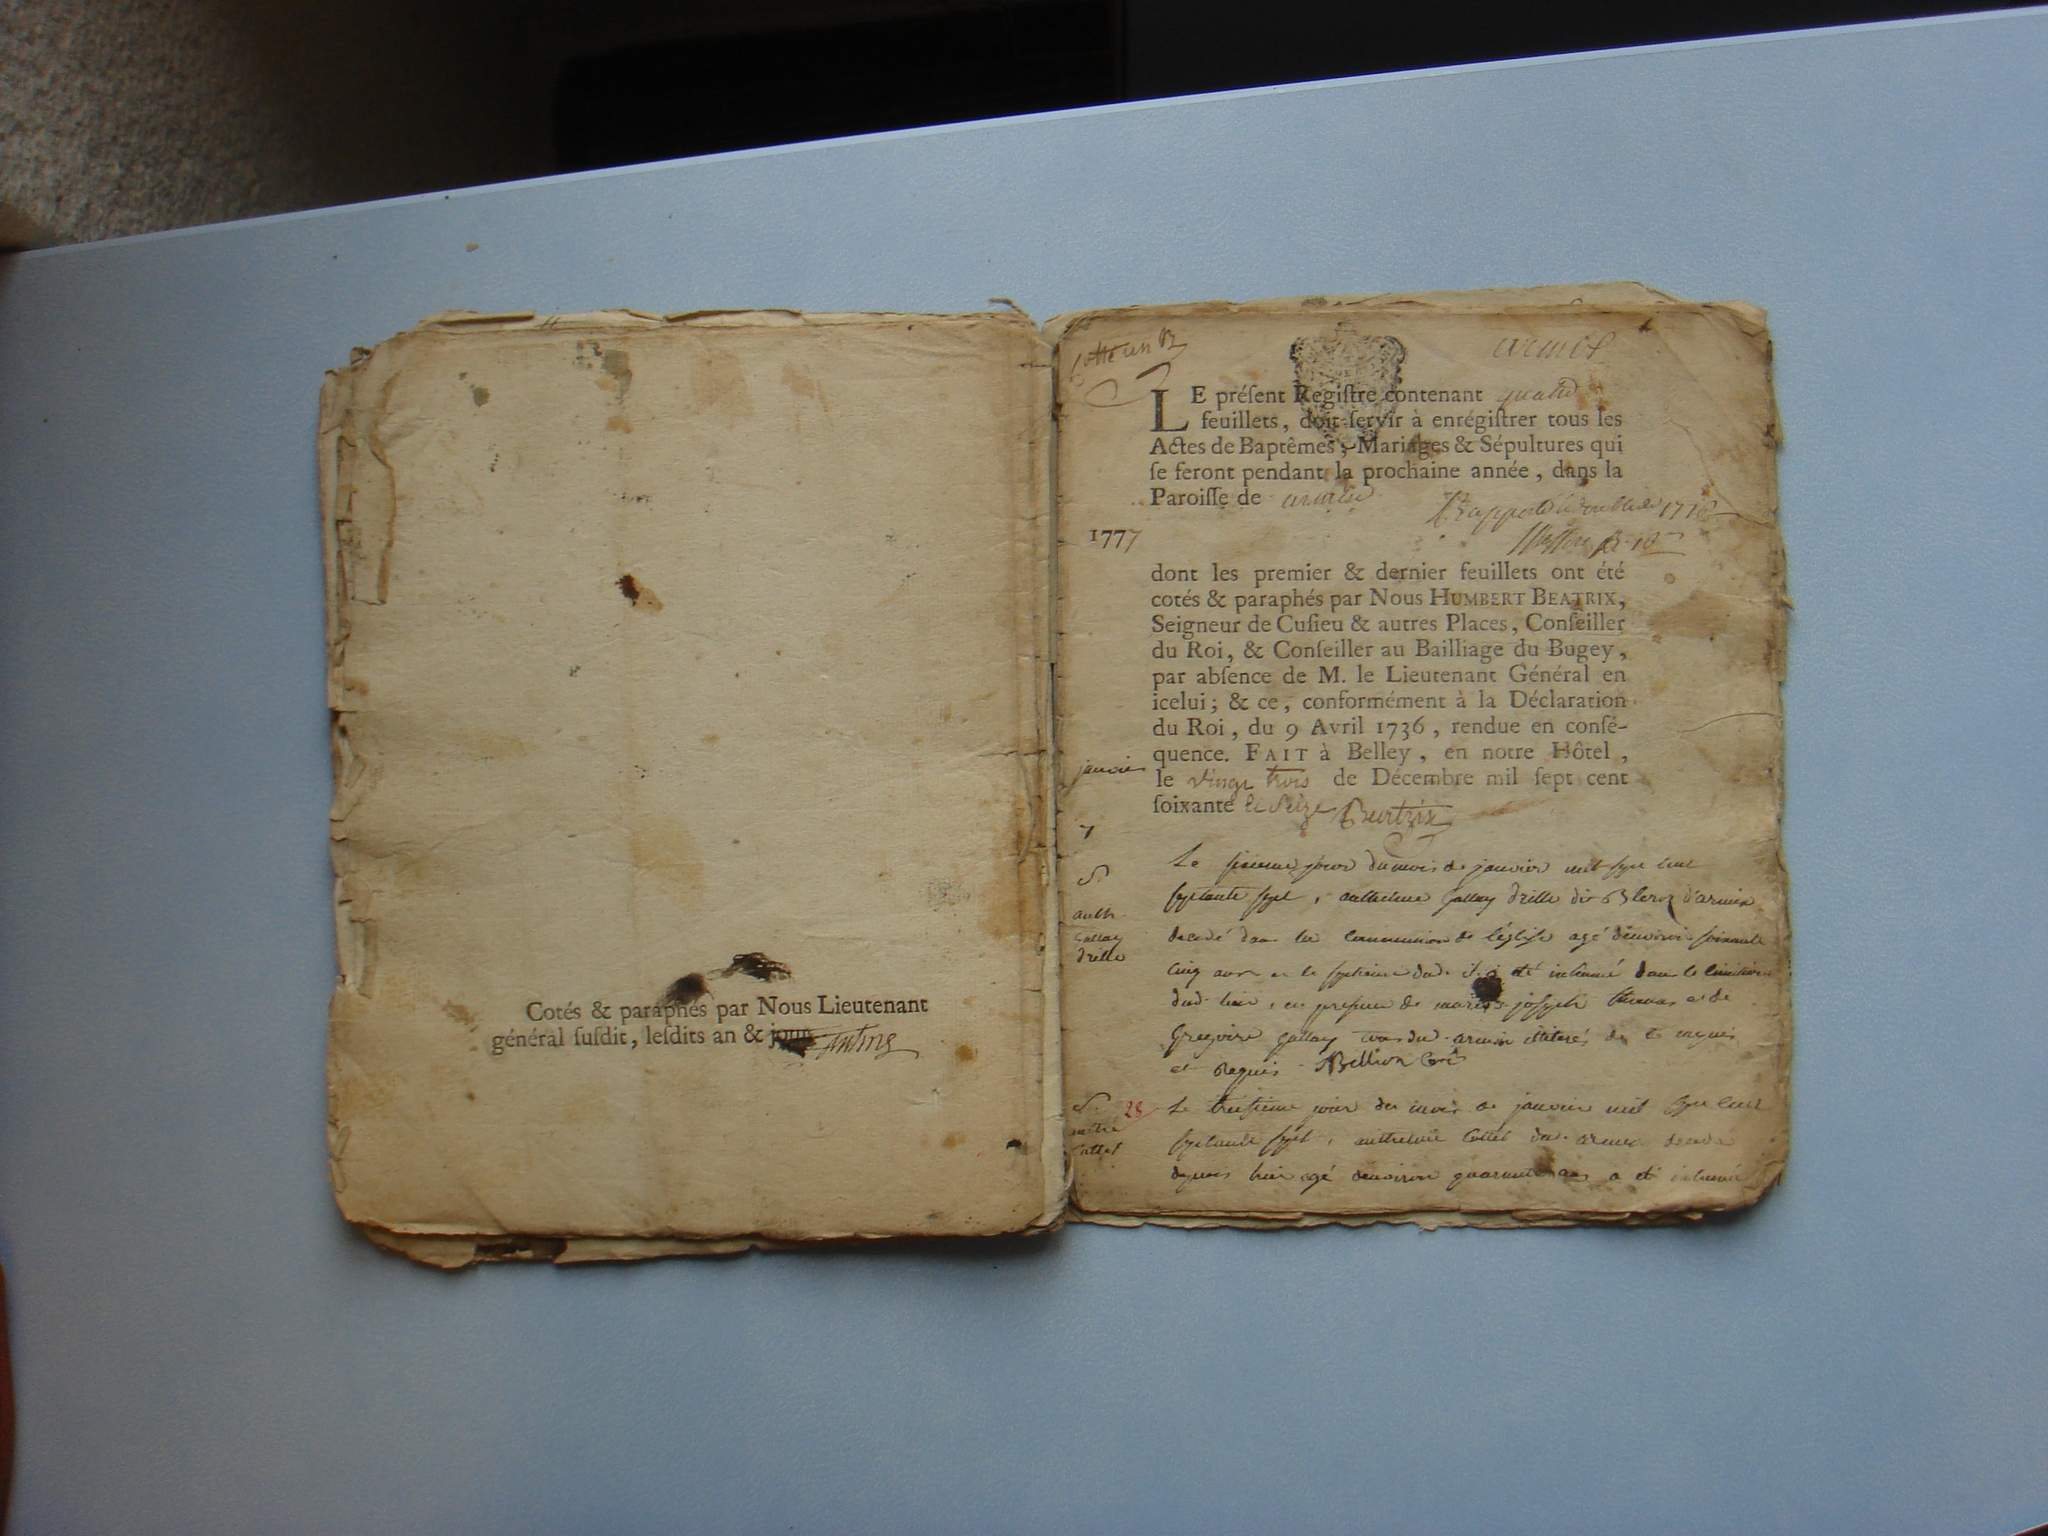 Cotés & paraphés par Nous Lieutenant
général ſuſdit, leſdits an & jour
Cotté un
armix
LE préſent Regiſtre contenant quatre
feuillets, doit ſervir à enrégiſtrer tous les
Actes de Baptêmes, Mariages & Sépultures qui
ſe feront pendant la prochaine année, dans la
Paroiſſe de armix
1777
dont les premier & dernier feuillets ont été
cotés & paraphés par Nous HUMBERT BEATRIX,
Seigneur de Cuſieu & autres Places, Conſeiller
du Roi, & Conſeiller au Bailliage du Bugey,
par abſence de M. le Lieutenant Général en
icelui; & ce, conformément à la Déclaration
du Roi, du 9 Avril 1736, rendue en conſé-
quence. FAIT à Belley, en notre Hôtel,
janvier
le vingt trois de Décembre mil ſept cent
ſoixante et seize Beatrix
7
S.
anth
Gallay
drille
Le jour du mois de janvier mil sept cent
septante sept, anthelme Gallay drille dit d'armix
decedé dans la communion de l'église agé d'environ soixante
cinq ans et le dud. il a été inhumé dans le cimetière
dud. lieu, en presence de joseph thomas et de
Gregoire Gallay tous du. armix illiterés de ce enquis
et requis Bellion Curé
S. 28
Collet
Le jour du mois de janvier mil sept cent
septante sept, anthelme Collet du. armix decedé
depuis hier agé d'environ quarante ans a été inhumé